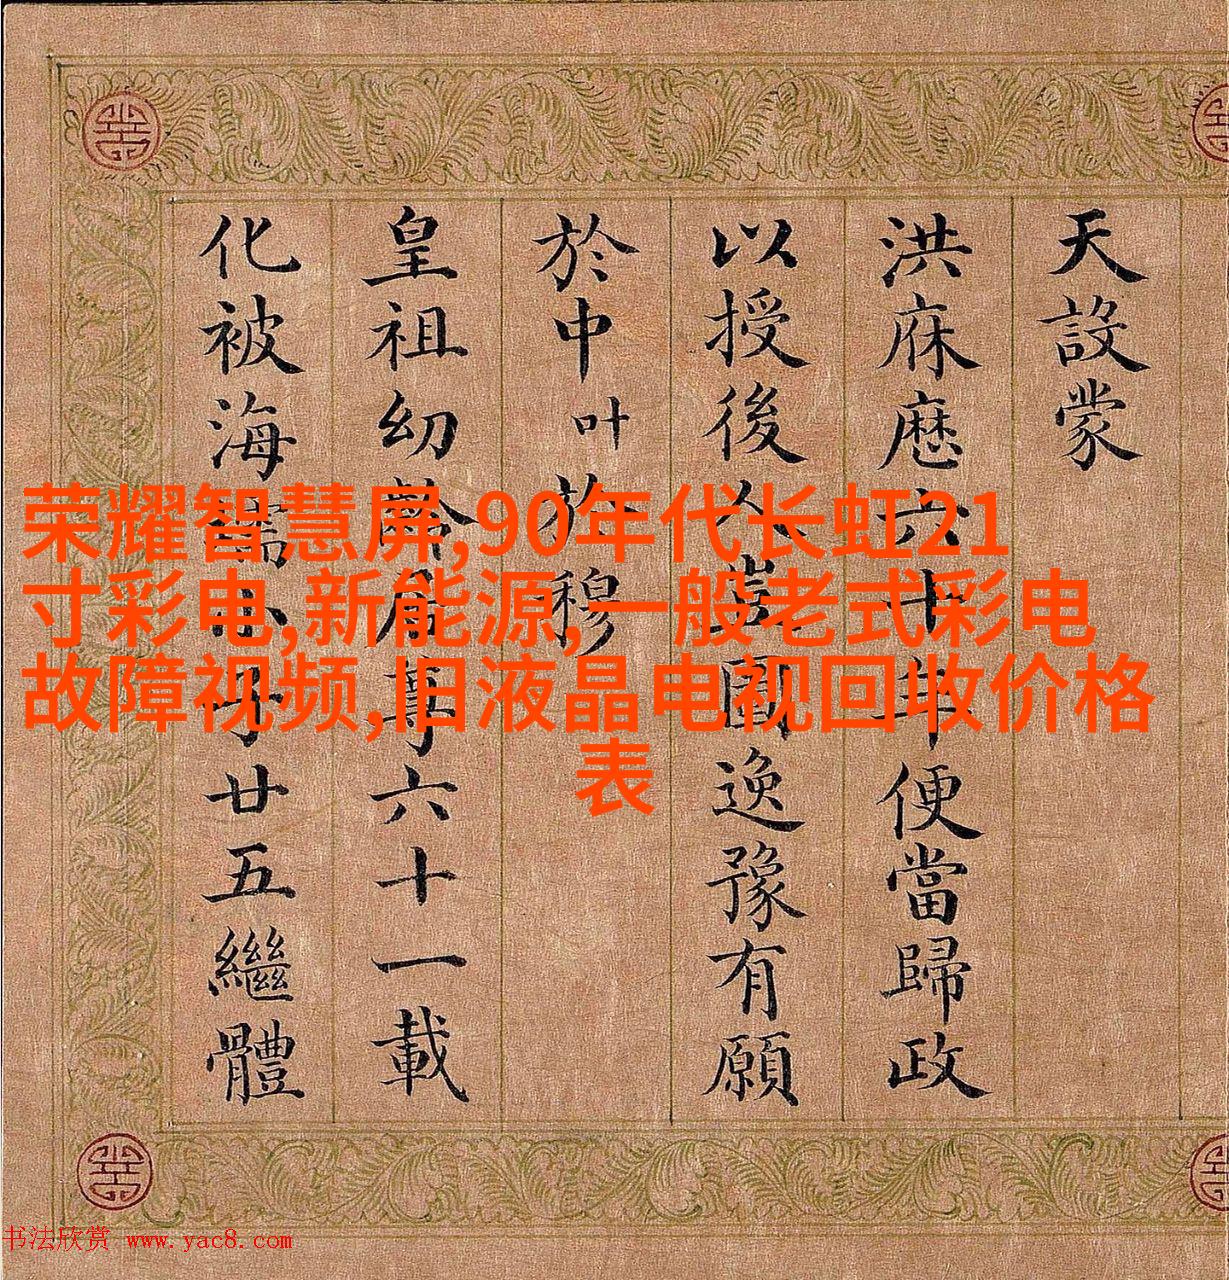 天設蒙
洪庥歴六十年便當歸政
以授後人豈圖逸豫有願
於中叶於穆
皇祖幼齡居尊六十一載
化被海小子廿五繼體
荣耀智慧屏,90年代长虹21
寸彩电,新能源,一般老式彩电
故障视频,旧液晶电视回收价格
表
书法欣赏 www.yac8.com